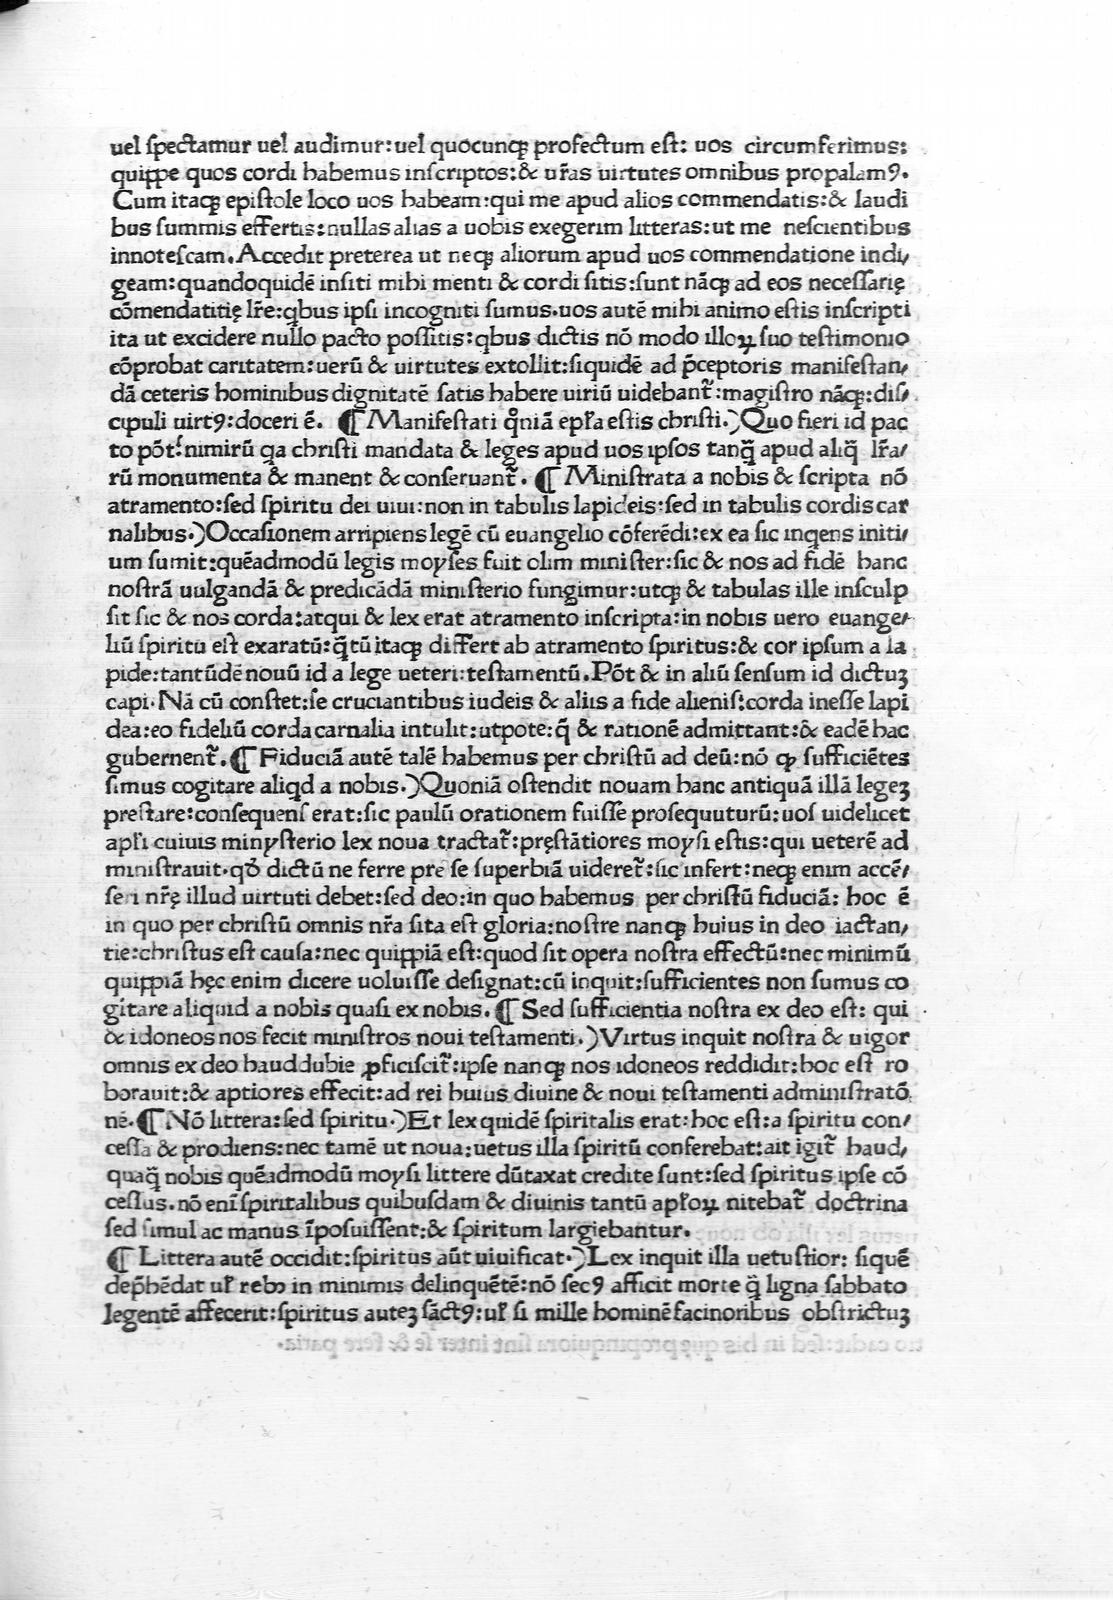 uel ſpectamur uel audimur:uel quocunqꝫ profectum eſt: uos circumferimus:
quippe quos cordi habemus inſcriptos:& ur̃as uirtutes omnibus propalamꝰ.
Cum itaqꝫ epiſtole loco uos habeam:qui me apud alios commendatis:& laudi
bus ſummis effertis:nullas alias a uobis exegerim litteras:ut me neſcientibus
innoteſcam.Accedit preterea ut neqꝫ aliorum apud uos commendatione indi/
geam:quandoquidē inſiti mihi menti & cordi ſitis:ſunt nāqꝫ ad eos neceſſarię
cōmendatitię lr̃e:qbus ipſi incogniti ſumus.uos autē mihi animo eſtis inſcripti
ita ut excidere nullo pacto poſſitis:qbus dictis nō modo illoꝝ ſuo teſtimonio
cōprobat caritatem:uerū & uirtutes extollit:ſiquidē ad p̄ceptoris manifeſtan/
dā ceteris hominibus dignitatē ſatis habere uiriū uidebant̃:magiſtro nāqꝫ:diſ/
cipuli uirtꝰ:doceri ē. ¶ Manifeſtati qm̄iā epl̃a eſtis chriſti.)Quo fieri id pac
to pōt:nimirū qa chriſti mandata & leges apud uos ipſos tanq̄ apud aliq̄ lr̃a/
rū monumenta & manent & conſeruant̃. ¶ Miniſtrata a nobis & ſcripta nō
atramento:ſed ſpiritu dei uiui:non in tabulis lapideis:ſed in tabulis cordis car
nalibus.)Occaſionem arripiens legē cū euangelio cōferēdi:ex ea ſic inqens initi/
um ſumit:quēadmodū legis moyſes fuit olim miniſter:ſic & nos ad fidē hanc
noſtrā uulgandā & predicādā miniſterio fungimur:utqꝫ & tabulas ille inſculp
ſit ſic & nos corda:atqui & lex erat atramento inſcripta:in nobis uero euange/
liū ſpiritu eſt exaratū:q̄tū itaqꝫ differt ab atramento ſpiritus:& cor ipſum a la
pide:tantūdē nouū id a lege ueteri:teſtamentū.Pōt & in aliū ſenſum id dictuꝫ
capi.Nā cū conſtet:ſe cruciantibus iudeis & aliis a fide alieniſ:corda ineſſe lapi
dea:eo fideliū corda carnalia intulit:utpote:q̄ & rationē admittant:& eadē hac
gubernent̃.¶ Fiduciā autē talē habemus per chriſtū ad deū:nō qꝫ ſufficiētes
ſimus cogitare aliqd a nobis.)Quoniā oſtendit nouam hanc antiquā illā legeꝫ
preſtare:conſequenſ erat:ſic paulū orationem fuiſſe proſequuturū:uoſ uidelicet
apl̃i cuius minyſterio lex noua tractat̃:pręſtātiores moyſi eſtis:qui ueterē ad
miniſtrauit.qđ dictū ne ferre pre ſe ſuperbiā uideret̃:ſic infert:neqꝫ enim accē/
ſeri nr̃ę illud uirtuti debet:ſed deo:in quo habemus per chriſtū fiduciā: hoc ē
in quo per chriſtū omnis nr̃a ſita eſt gloria:noſtre nanqꝫ huius in deo iactan/
tie:chriſtus eſt cauſa:nec quippiā eſt:quod ſit opera noſtra effectū:nec minimū
quippiā hęc enim dicere uoluiſſe deſignat:cū inquit:ſufficientes non ſumus co
gitare aliquid a nobis quaſi ex nobis.¶ Sed ſufficientia noſtra ex deo eſt: qui
& idoneos nos fecit miniſtros noui teſtamenti.)Virtus inquit noſtra & uigor
omnis ex deo haud dubie ꝓficiſcit̃:ipſe nanqꝫ nos idoneos reddidit:hoc eſt ro
borauit:& aptiores effecit:ad rei huius diuine & noui teſtamenti adminiſtratō
nē.¶ Nō littera:ſed ſpiritu.)Et lex quidē ſpiritalis erat:hoc eſt:a ſpiritu con/
ceſſa & prodiens:nec tamē ut noua:uetus illa ſpiritū conferebat:ait igit̃ haud/
quaq̄ nobis quēadmodū moyſi littere dūtaxat credite ſunt:ſed ſpiritus ipſe cō
ceſſus.nō enī ſpiritalibus quibuſdam & diuinis tantū apl̃oꝝ nitebat̃ doctrina
ſed ſimul ac manus īpoſuiſſent:& ſpiritum largiebantur.
¶ Littera autē occidit:ſpiritus aūt uiuificat.)Lex inquit illa uetuſtior: ſiquē
dep̄hēdat ul̃ rebꝰ in minimis delinquētē:nō ſecꝰ afficit morte q̄ ligna ſabbato
legentē affecerit:ſpiritus auteꝫ ſāctꝰ:ul̃ ſi mille hominē facinoribus obſtrictuꝫ